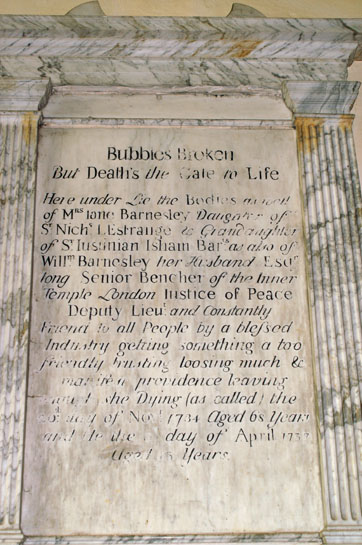 Bubbles Broken
But Death's the Gate to Life
Here under Lie the Bodies as well
of Mrs Iane Barnesley Daughter of
Sr Nichs L'Estrange & Granddaughter
of Sr Iustinian Isham Barts as also of
Willm Barnesley her Husband Esqr
long Senior Bencher of the Inner
Temple London Iustice of Peace
Deputy Lieut and Constantly
Friend to all People by a blessed
Industry getting something a too
friendly trusting loosing much &
providence leaving
she Dying (as called) the
day of Novr 1734 Aged 68 Years
and He the day of April
Aged Years